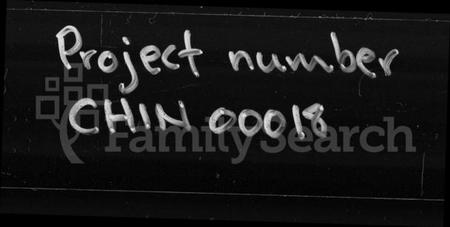 Project number
CHIN 00018
FamilySearch